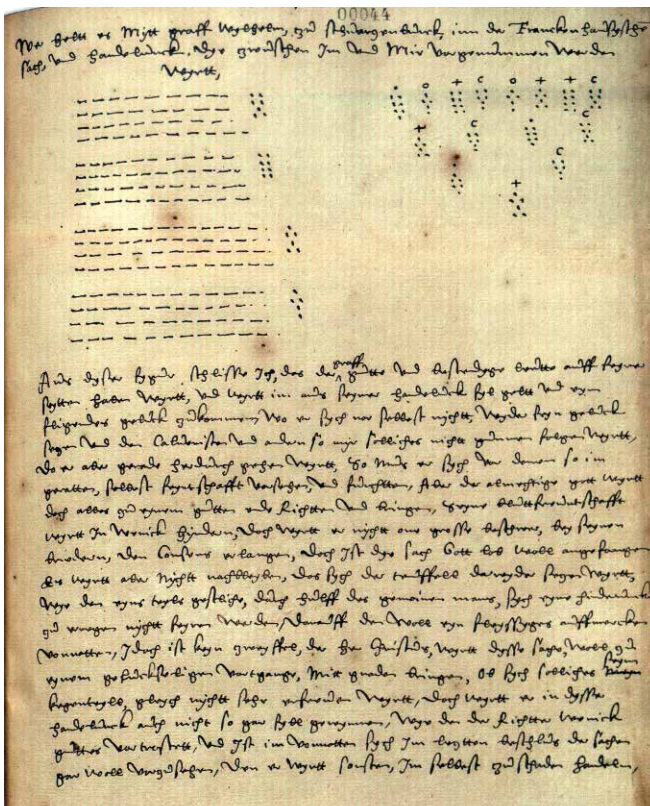 00044
heltt es Mitt graff Wylhelm, zu schwarzenburck, inn der Franckenhaußysche
sach, und handelunck, dye zwuschen Im und Mir vorgenummen werden
wyrtt,
Aus dysser fygur schlisse Ich, das der graff gutte und bestendyge leutte auff seyner
seytten haben wyrtt, und wyrtt im aus seyner handelunck fyl geltt und eyn
fligendes geluck zukommen, wo er sych nor selbest nichtt, wyder seyn geluck
legen und den Caluinisten und andern so mir solliches nicht gunnen folgen wyrtt,
Do er aber gerade hordurch gehen wyrtt, So Mus er sych vor denen so im
geratten, selbest feyntschafft vorsehen, und furchtten, Aber der almechtige gott wyrtt
doch alles zu eynem gutten ende Richtten und bringen, Seyne bluttfreuntschafft
wyrtt In wenick hyndern, doch wyrtt er nychtt one grosse beschwer, bey seynen
brudern, den Consens erlangen, doch Ist dye sach Gott lob woll angefangen
Es wyrtt aber Nychtt nachbleyben, das sych der teuffell darwyder legen wyrtt,
wye den eyns teyls gestliche, durch hulff des gemeinen mans, sych eyne
zu erregen nychtt feyren werden, darauff den woll eyn fleyssyges auffmercken
vonnotten, Idoch ist keyn zweyffel, der her Christus, wyrtt dysse sache, woll, zu
eynem geluckseligen vortgange, Mitt gnaden bringen, Ob sych solliches seyn
kegenteyll, gleych nychtt sehr erfreuen wyrtt, doch wyrtt er in dysser
handelunck auch nicht so gar fyll gewynnen, wye den der Richtter wenick
guttes vortrestett, und Ist im vonnotten sych Im leytten beschlus der sachen
gar woll vorzusehen, den er wyrtt sonsten, Im selbest zu schaden handeln,